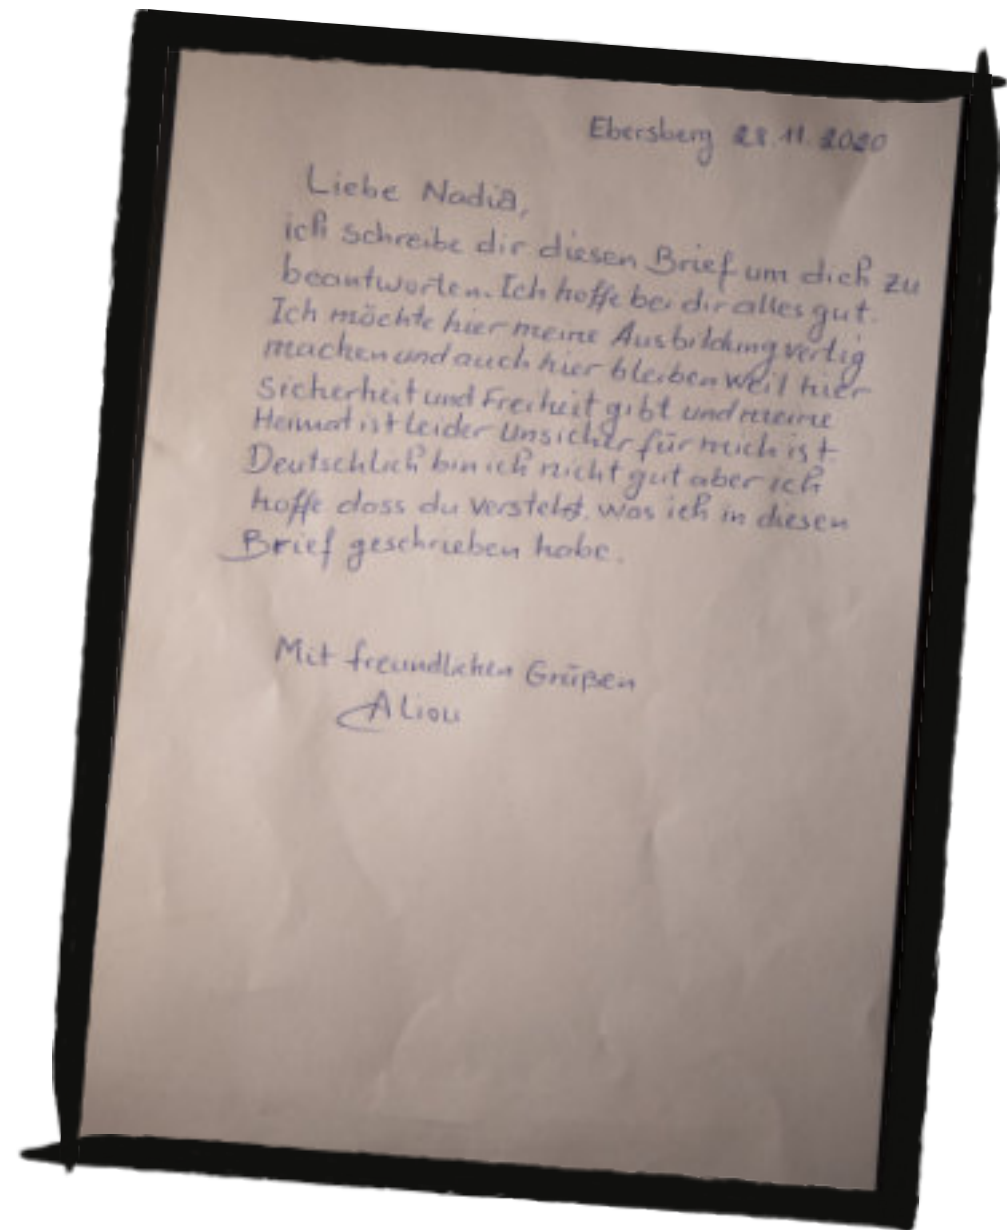 Ebersberg 28.11.2020
Liebe Nadia,
ich schreibe dir diesen Brief um dich zu
beantworten. Ich hoffe bei dir alles gut.
Ich möchte hier meine Ausbildung vertig
machen und auch hier bleiben weil hier
Sicherheit und Freiheit gibt und meine
Heimat ist leider unsicher für mich ist.
Deutschlich bin ich nicht gut aber ich
hoffe dass du verstehst. was ich in diesen
Brief geschrieben habe.
Mit freundlichen Grüßen
Aliou